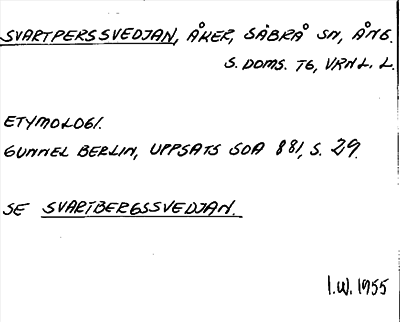 SVARTPERSSVEDJAN, ÅKER, SÄBRÅ SN, ÅNG.
S. DOMS. TG, VRNL. L.
ETYMOLOGI.
GUNNEL BERLIN, UPPSATS SOA 881, S. 29.
SE SVARTBERGSSVEDJAN.
I.W. 1955